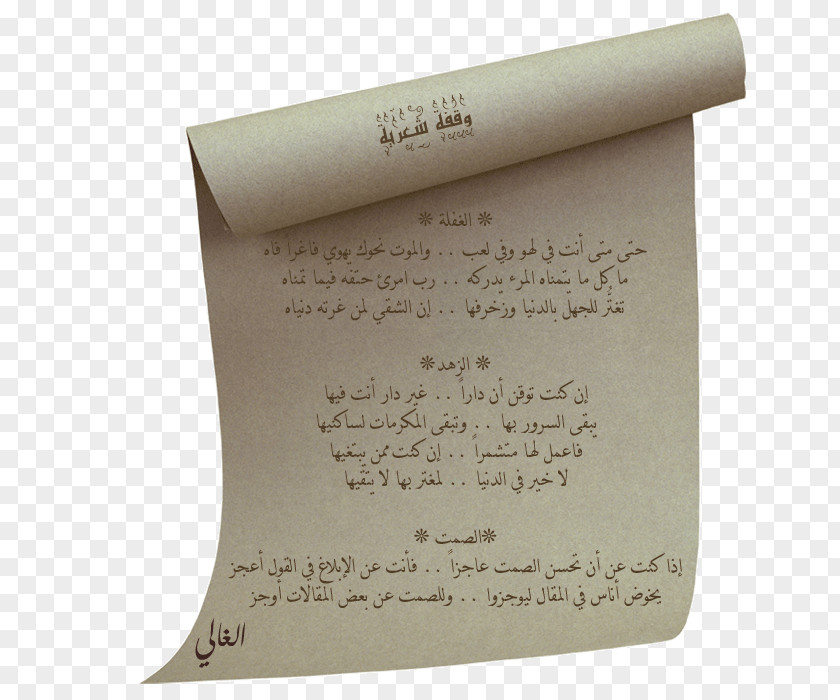 وقفة شعرية
❊ الغفلة ❊
حتّى متى أنت في لهو وفي لعب .. والموت نحوك يهوي فاغرا فاه
ما كل ما يتمناه المرء يدركه .. رب امرئ حتفه فيما تمناه
تغتُّر للجهل بالدنيا وزخرفها .. إن الشقي لمن غرته دنياه
❊ الزهد❊
إن كنت توقن أن داراً .. غير دار أنت فيها
يبقى السرور بها .. وتبقى المكرمات لساكنيها
فاعمل لها متشمراً .. إن كنت ممن يبتغيها
لا خير في الدنيا .. لمغتر بها لا يتقيها
❊الصمت ❊
إذا كنت عن أن تحسن الصمت عاجزاً .. فأنت عن الإبلاغ في القول أعجز
يخوض أناس في المقال ليوجزوا .. وللصمت عن بعض المقالات أوجز
الغالي